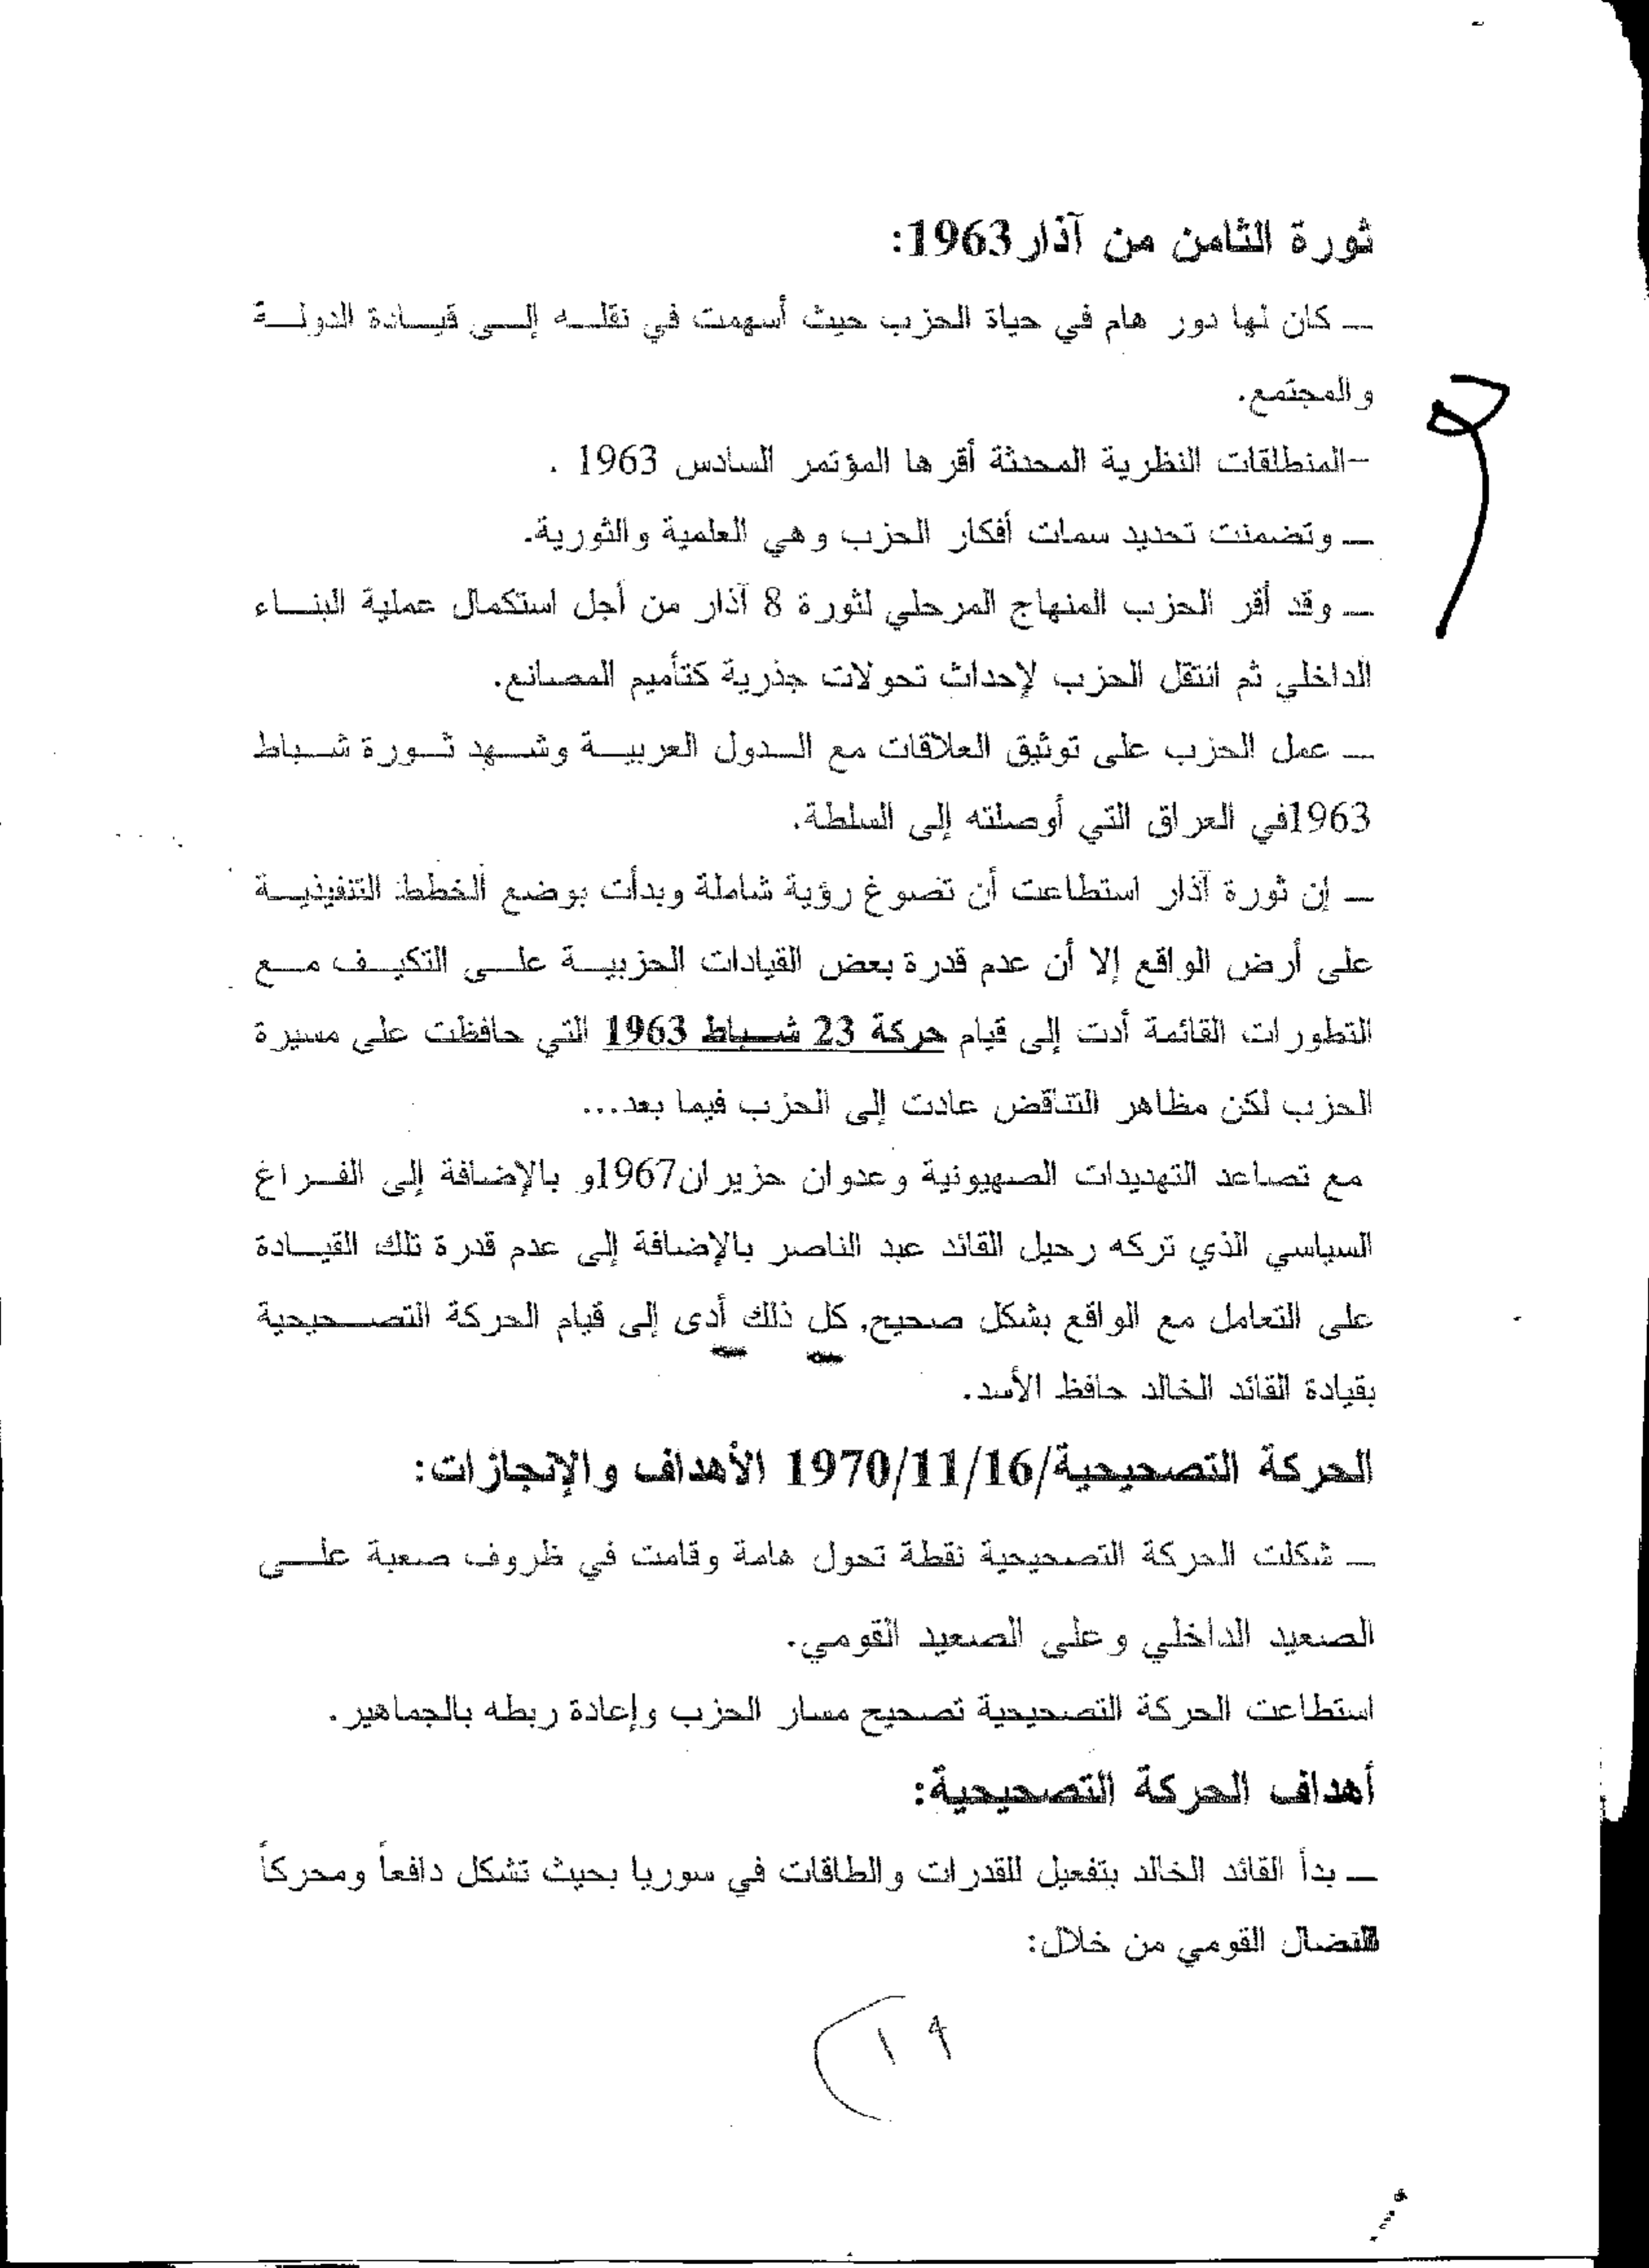 ثورة الثامن من آذار1963:
ــ كان لها دور هام في حياة الحزب حيث أسهمت في نقله إلى قيادة الدولة
والمجتمع.
-المنطلقات النظرية المحدثة أقرها المؤتمر السادس 1963 .
ــ وتضمنت تحديد سمات أفكار الحزب وهي العلمية والثورية.
ــ وقد أقر الحزب المنهاج المرحلي لثورة 8 آذار من أجل استكمال عملية البناء
الداخلي ثم انتقل الحزب لإحداث تحولات جذرية كتأميم المصانع.
ــ عمل الحزب على توثيق العلاقات مع الدول العربية وشهد ثورة شباط
1963في العراق التي أوصلته إلى السلطة.
ــ إن ثورة آذار استطاعت أن تصوغ رؤية شاملة وبدأت بوضع الخطط التنفيذية
على أرض الواقع إلا أن عدم قدرة بعض القيادات الحزبية على التكيف مع
التطورات القائمة أدت إلى قيام حركة 23 شباط 1963 التي حافظت على مسيرة
الحزب لكن مظاهر التناقض عادت إلى الحزب فيما بعد...
مع تصاعد التهديدات الصهيونية وعدوان حزيران1967و بالإضافة إلى الفراغ
السياسي الذي تركه رحيل القائد عبد الناصر بالإضافة إلى عدم قدرة تلك القيادة
على التعامل مع الواقع بشكل صحيح, كل ذلك أدى إلى قيام الحركة التصحيحية
بقيادة القائد الخالد حافظ الأسد.
الحركة التصحيحية/1970/11/16 الأهداف والإنجازات:
ــ شكلت الحركة التصحيحية نقطة تحول هامة وقامت في ظروف صعبة على
الصعيد الداخلي وعلى الصعيد القومي.
استطاعت الحركة التصحيحية تصحيح مسار الحزب وإعادة ربطه بالجماهير.
أهداف الحركة التصحيحية:
ــ بدأ القائد الخالد بتفعيل للقدرات والطاقات في سوريا بحيث تشكل دافعاً ومحركاً
للنضال القومي من خلال:
١٩